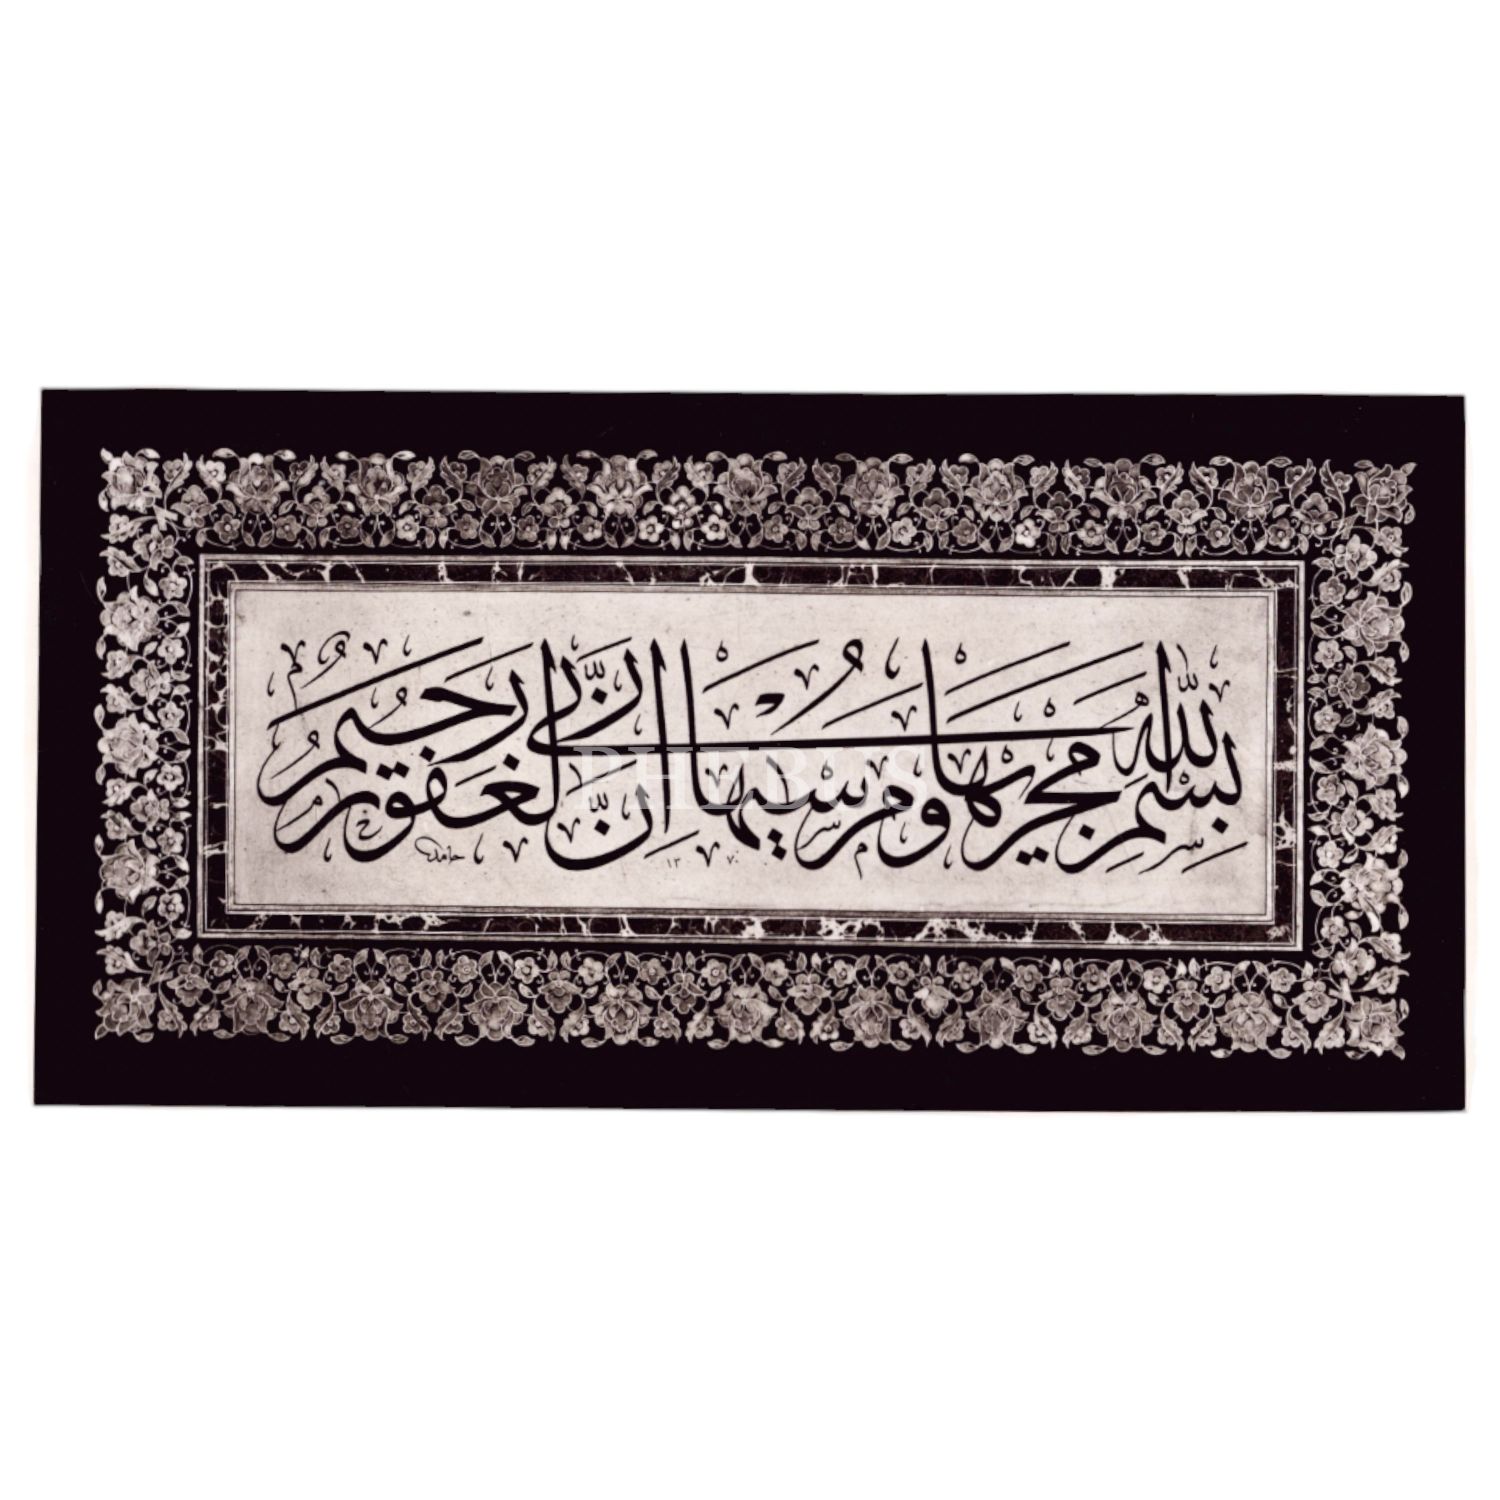 بِسْمِ اللهِ مَجْرٰيهَا وَمُرْسٰيهَا اِنَّ رَبّٖى لَغَفُورٌ رَحٖيمٌ
حامد
PHEBUS